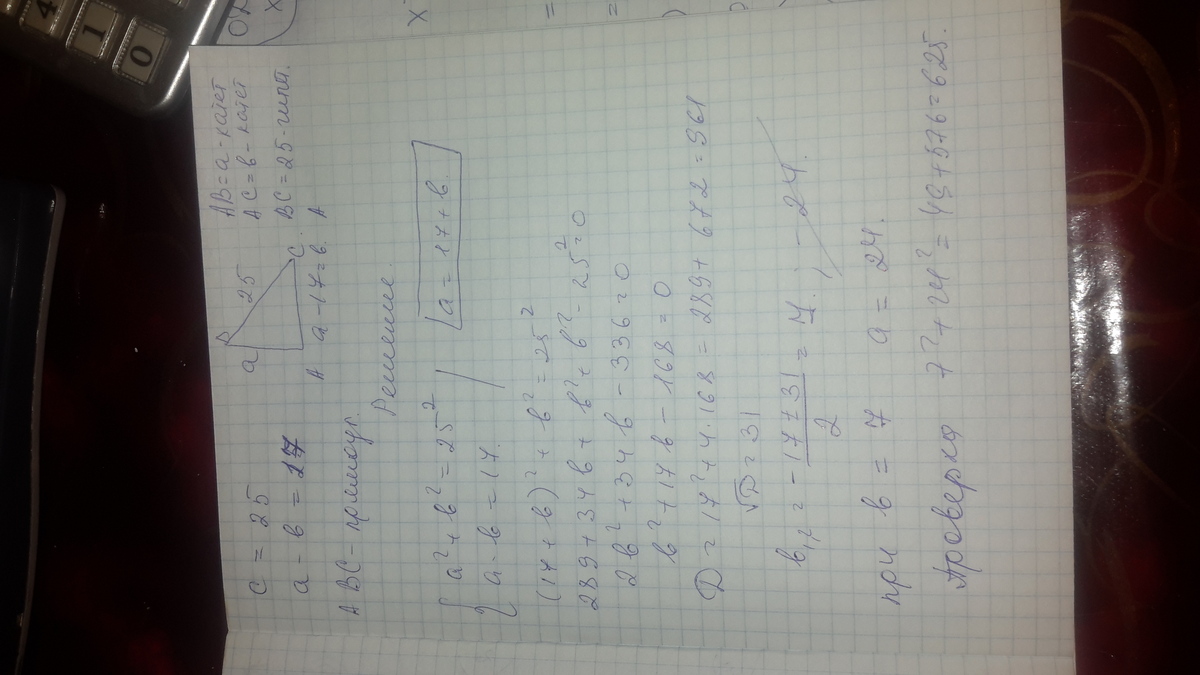 c = 25
a - в = 17
ABC - прямоуг.
a
B
25
C
A
a - 17 = в.
AB = a - катет
AC = в - катет
BC = 25 - гипот.
A
Решение.
{ a² + в² = 25²
a - в = 17.
a = 17 + в.
(17 + в)² + в² = 25²
289 + 34в + в² + в² - 25² = 0
2в² + 34в - 336 = 0
в² + 17в - 168 = 0
D = 17² + 4·168 = 289 + 672 = 961
√D = 31
в₁,₂ = (-17 ± 31)/2 = 7. ; -24.
при в = 7 a = 24.
Проверка 7² + 24² = 49 + 576 = 625.
4
1
0
x
x
=
=